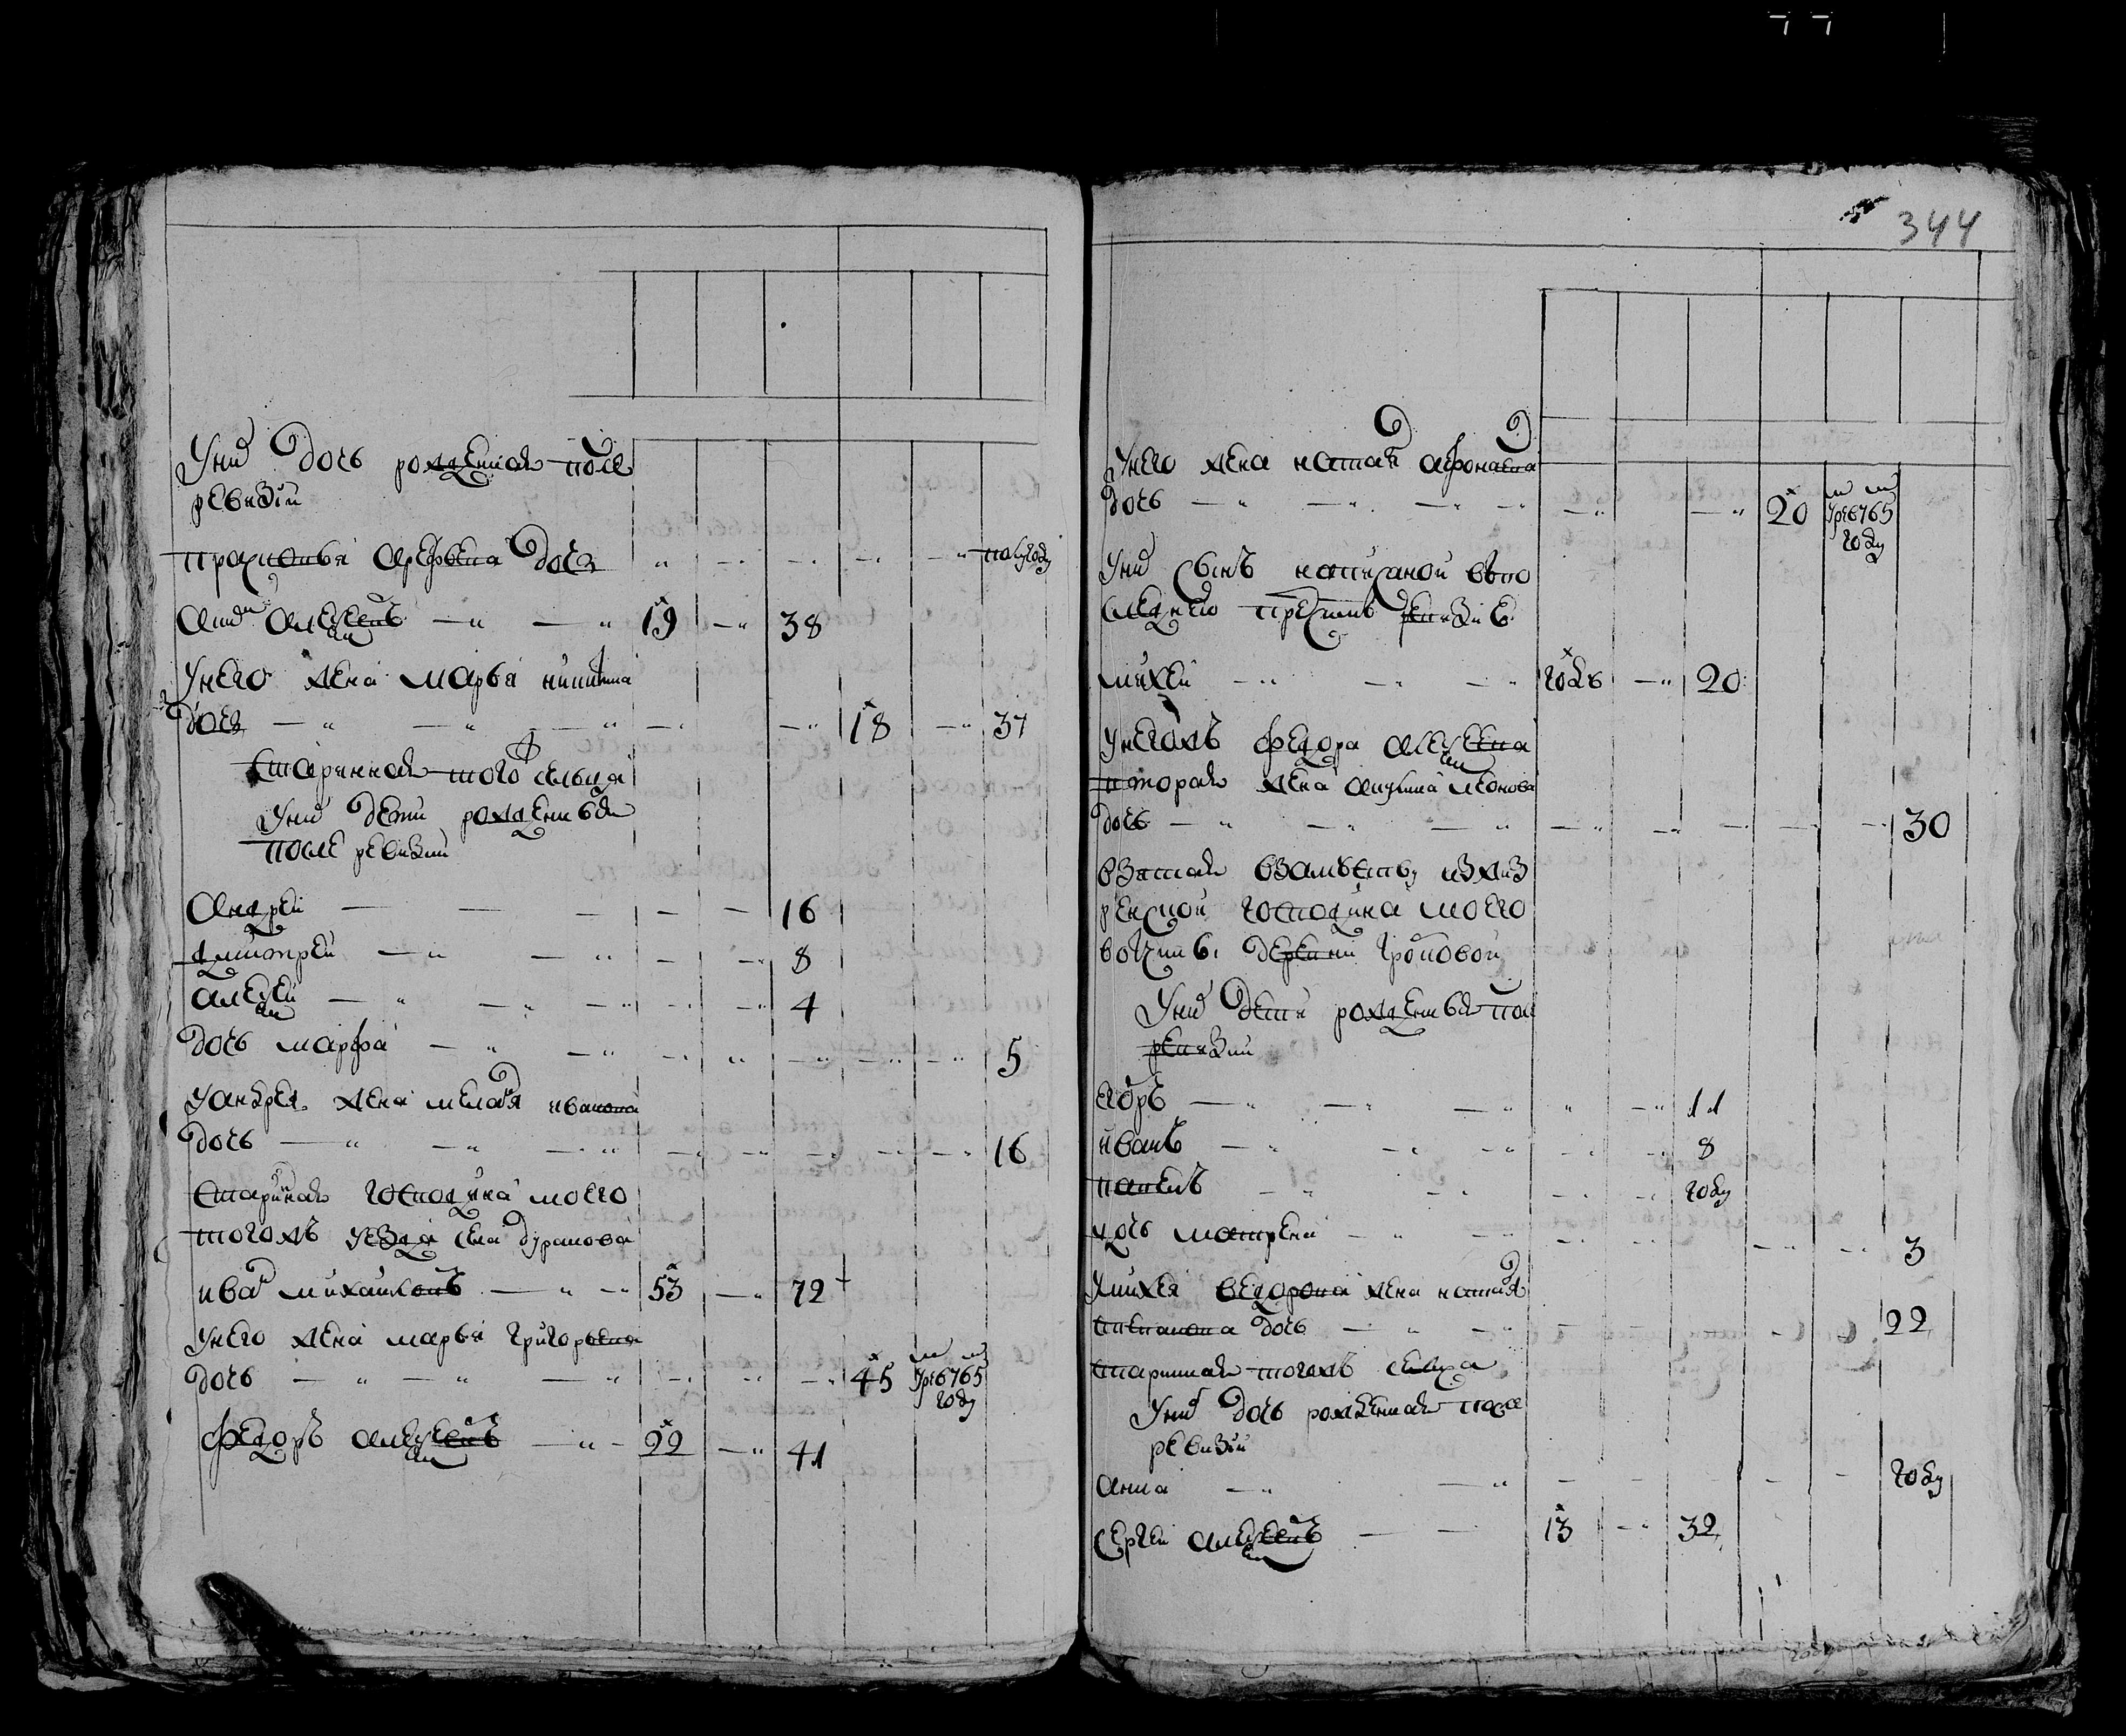 344
У них дочь рожденная после
ревизии
Прасковья Арефьева дочь — полугоду
Алексеевъ 19 — 38
У него жена Марья Никитина
дочь 18 — 37
Старинная того сельца
У них дети рожденныя
после ревизии
Андрей — 16
Дмитрей — 8
Алексей — 4
дочь Марфа — 5
У Андрея жена Меланья Иванова
дочь — 16
Старинная господина моего
тогожъ уезда села Дуракова
Иван Михайловъ — 53 — 72
У него жена Марья Григорьева
дочь — 45 умре 765 году
Федоръ Алексеевъ — 22 — 41
У него жена Наталья Афонасьева
дочь — 20 умре 765 году
У них сынъ написаной в по
следнею пред сим ревизиею
Михей — годъ — 20
У негожъ Федора Алексеева
вторая жена Акулина Леонова
дочь — 30
взятая в замужество из
господина моего
вотчины деревни
У них дети рожденныя после
ревизии
Егоръ — 11
Иванъ — 8
Павелъ — году
дочь Матрена — 3
У Михея Федорова жена Наталья
Степанова дочь — 22
старинная тогожъ сельца
У них дочь рожденная после
ревизии
Анна — году
Сергей Алексеевъ — 13 — 32